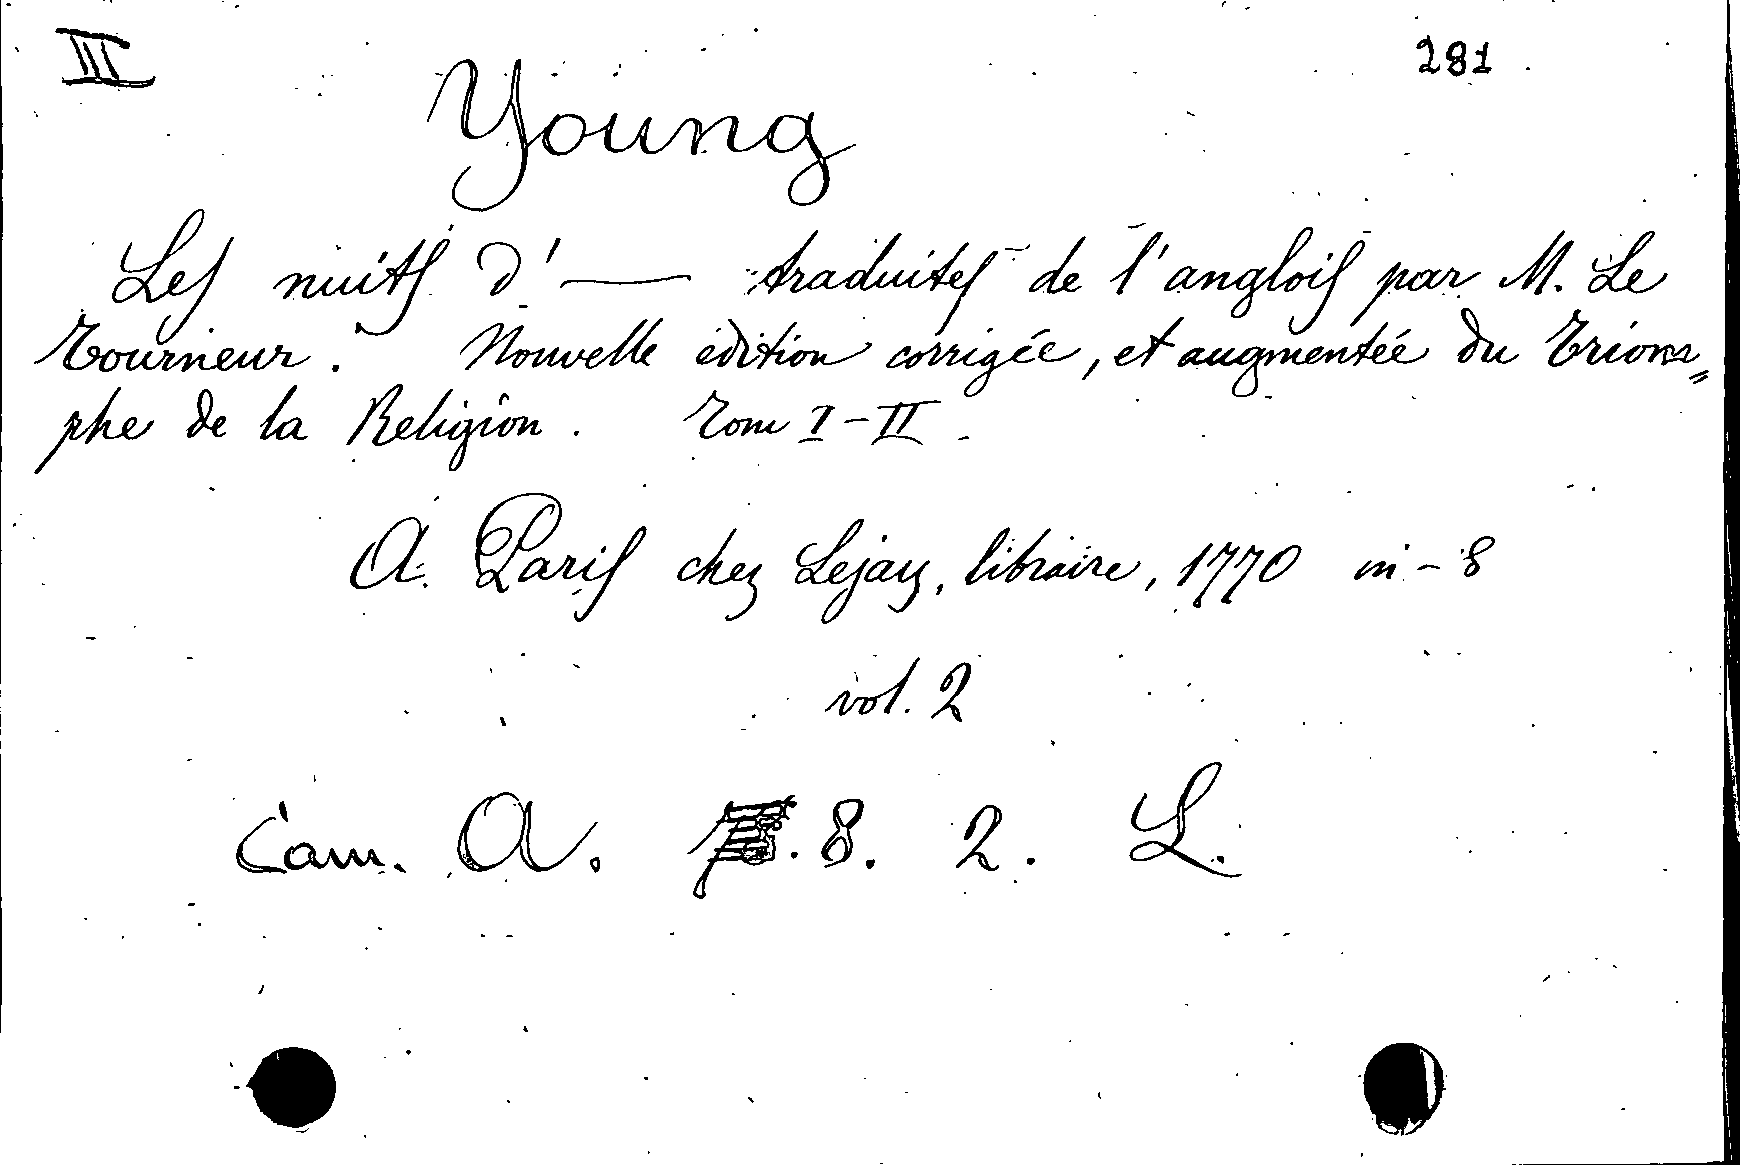 III 281
Young
Les nuits d' — traduites de l'anglois par M. Le
Tourneur. Nouvelle édition corrigée, et augmentée du Triom=
phe de la Religion. Tom I-II.
A. Paris chez Lejay, libraire, 1770 in-8
vol. 2
Cam. A. 8. 2. L.